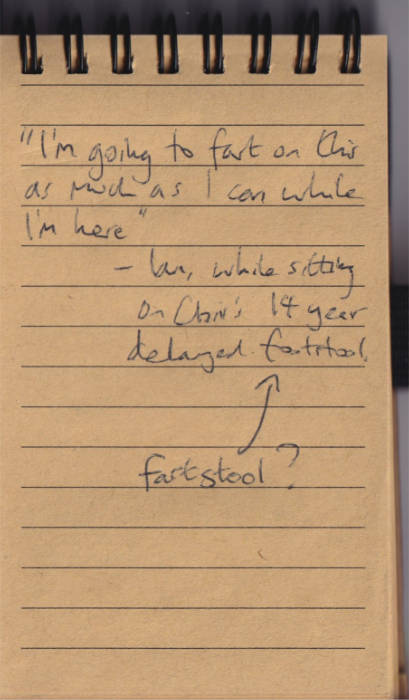 "I'm going to fart on this
as much as I can while
I'm here"
– Ian, while sitting
on 14 year
delayed footstool.
fartstool?